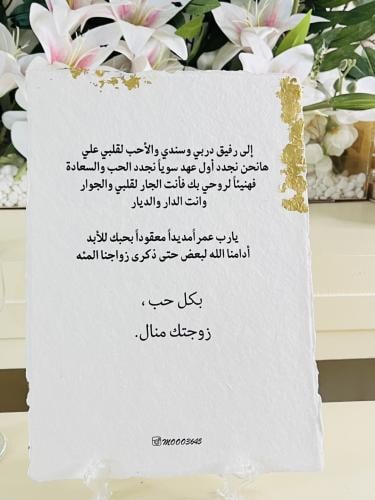 إلى رفيق دربي وسندي والأحب لقلبي علي
هانحن نجدد أول عهد سوياً نجدد الحب والسعادة
فهنيئاً لروحي بك فأنت الجار لقلبي والجوار
وانت الدار والديار
يارب عمر أمديداً معقوداً بحبك للأبد
أدامنا الله لبعض حتى ذكرى زواجنا المئه
بكل حب ،
زوجتك منال.
MOOO3645